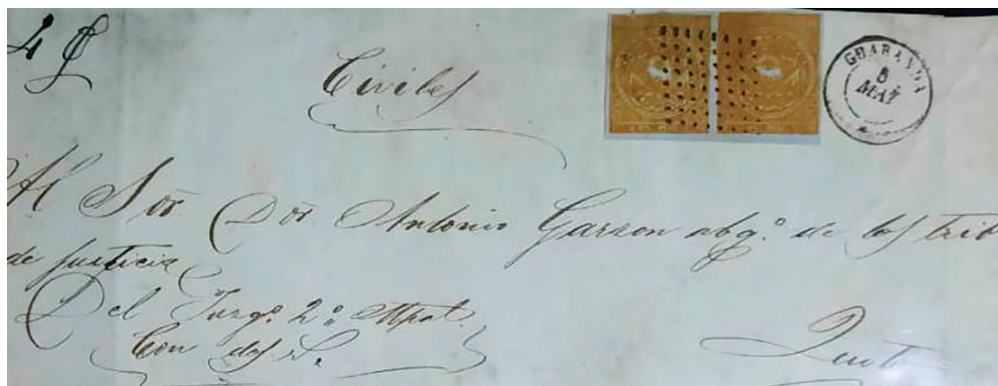 4 
Civiles
GUARANDA
5
MAY
Al Sor. Dor. Antonio Garzon abgo. de los trib
de justicia
Del Juzgo. 2o. Mpal.
Con dos
Quito